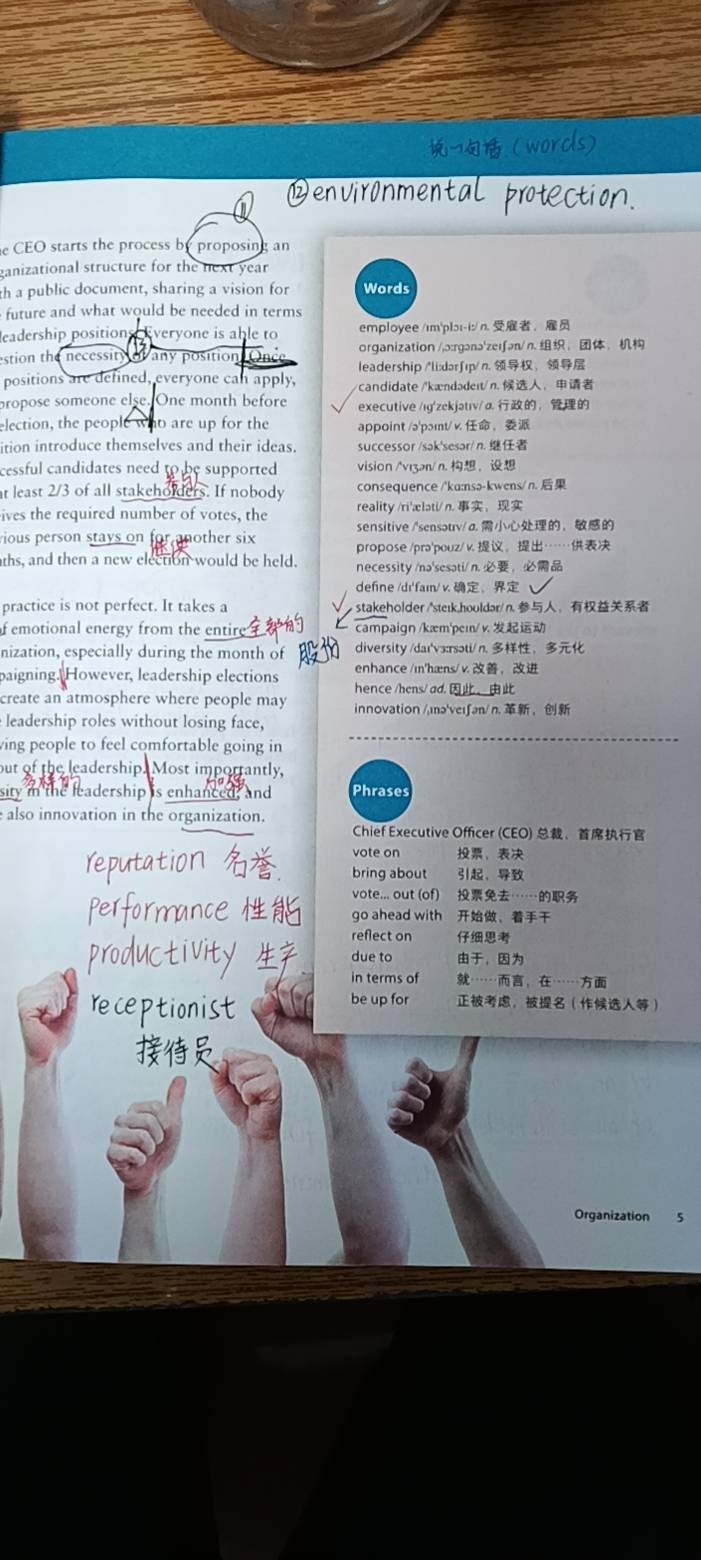 说一句话 (words)
⑫ environmental protection.
⑪
CEO starts the process by proposing an
structure for the next year
a public document, sharing a vision for
future and what would be needed in terms
leadership positions. Everyone is able to
the necessity of any position. Once
⑬
positions are defined, everyone can apply,
propose someone else. One month before
election, the people who are up for the
introduce themselves and their ideas.
candidates need to be supported
参与人
least 2/3 of all stakeholders. If nobody
the required number of votes, the
person stays on for another six
继续
and then a new election would be held.
practice is not perfect. It takes a
emotional energy from the entire 全部的
especially during the month of
However, leadership elections
create an atmosphere where people may
leadership roles without losing face,
people to feel comfortable going in
out of the leadership. Most importantly,
多样的 加强
in the leadership is enhanced, and
also innovation in the organization.
reputation 名誉.
performance 性能
productivity 生产
receptionist
接待员
Words
employee /ɪmˈplɔɪ-iː/ n. 受雇者，雇员
organization /ˌɔːrgənəˈzeɪʃən/ n. 组织，团体，机构
leadership /ˈliːdərʃɪp/ n. 领导权，领导层
candidate /ˈkændədeɪt/ n. 候选人，申请者
executive /ɪgˈzekjətɪv/ a. 行政的，管理的
appoint /əˈpɔɪnt/ v. 任命，委派
successor /səkˈsesər/ n. 继任者
vision /ˈvɪʒən/ n. 构想，设想
consequence /ˈkɑːnsə-kwens/ n. 后果
reality /riˈæləti/ n. 事实，现实
sensitive /ˈsensətɪv/ a. 需小心处理的，敏感的
propose /prəˈpouz/ v. 提议，提出……供表决
necessity /nəˈsesəti/ n. 必要，必需品
define /dɪˈfaɪn/ v. 确定，界定
stakeholder /ˈsteɪkˌhouldər/ n. 参与人，有权益关系者
股份
campaign /kæmˈpeɪn/ v. 发起运动
diversity /daɪˈvɜːrsəti/ n. 多样性，多元化
enhance /ɪnˈhæns/ v. 改善，改进
hence /hens/ ad. 因此，由此
innovation /ˌɪnəˈveɪʃən/ n. 革新，创新
Phrases
Chief Executive Officer (CEO) 总裁，首席执行官
vote on 投票，表决
bring about 引起，导致
vote... out (of) 投票免去……的职务
go ahead with 开始做，着手干
reflect on 仔细思考
due to 由于，因为
in terms of 就……而言，在……方面
be up for 正被考虑，被提名（作候选人等）
Organization 5